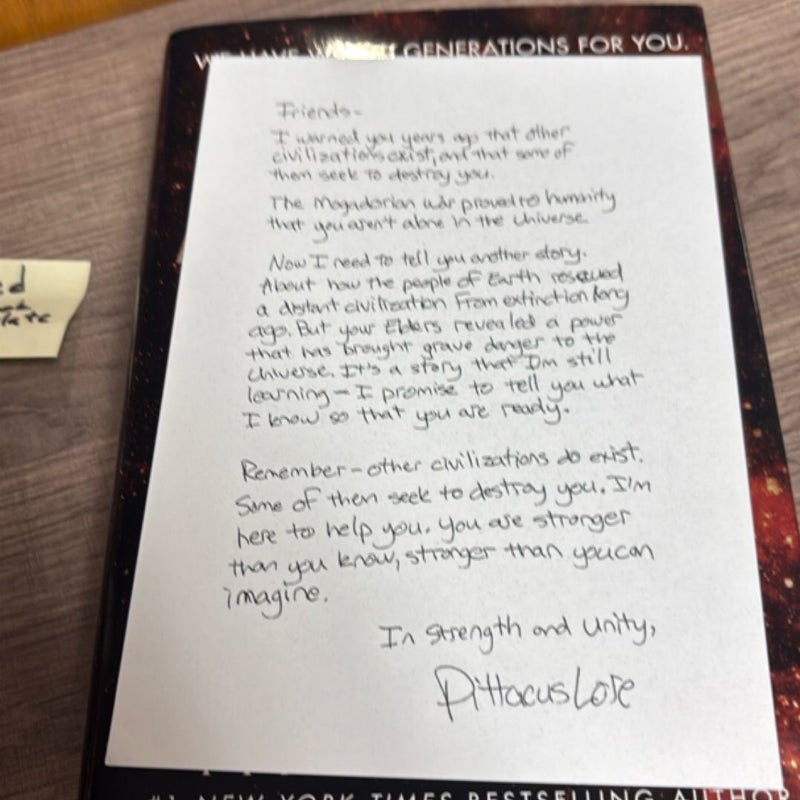 WE HAVE GENERATIONS FOR YOU.
Friends-
I warned you years ago that other
civilizations exist, and that some of
them seek to destroy you.
The Mogadorian war proved to humanity
that you aren't alone in the Universe.
Now I need to tell you another story.
About how the people of Earth rescued
a distant civilization from extinction long
ago. But your Elders revealed a power
that has brought grave danger to the
Universe. It's a story that I'm still
learning - I promise to tell you what
I know so that you are ready.
Remember - other civilizations do exist.
Some of them seek to destroy you. I'm
here to help you. You are stronger
than you know, stronger than you can
imagine.
In Strength and Unity,
Pittacus Lore
#1 NEW YORK TIMES BESTSELLING AUTHOR